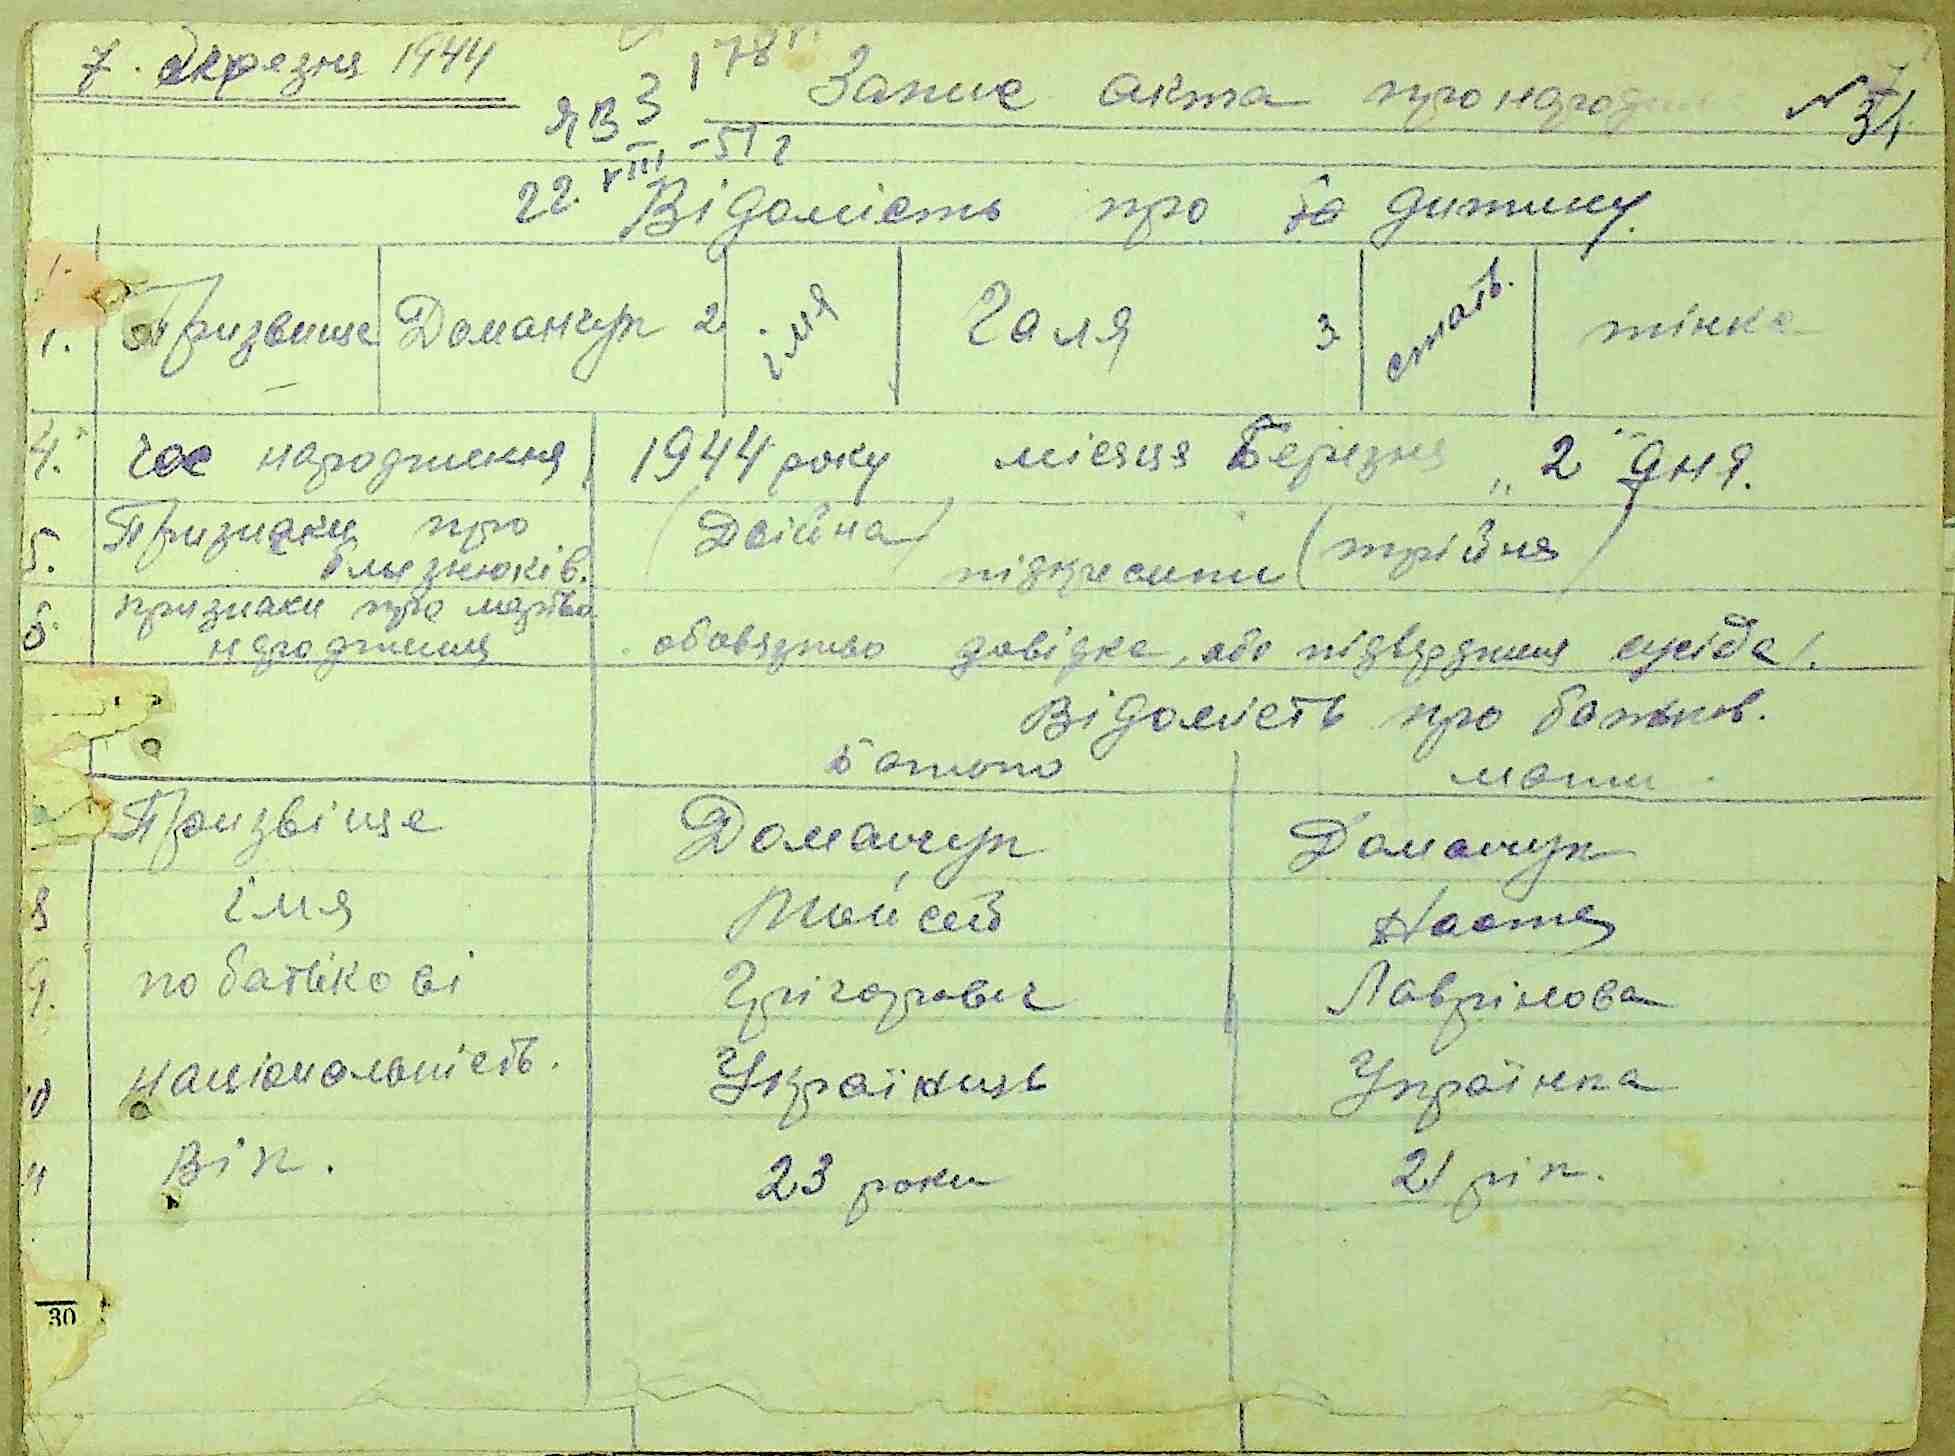 7. березня 1944
178
Запис акта про народж
№ 31
ЯВЗ
22. VIII -51 г
Відомість про дитину.
1. Призвище Доманчук 2 імя Галя 3 стать. жінка
4. час народження 1944 року місяця Березня „ 2 " дня.
5. Признаки про близнюків. (Двійна) підкреслити (трійня)
6 признаки про мертво народження обовязково довідка, або підтвердженя сусіда.
Відомість про батьків.
батько мати
Призвіще Доманчук Доманчук
8 імя Мойсей Настя
9. по батькові Грігорович Лаврінова
10 національність. Українець Українка
11 Вік. 23 роки 21 рік.
30